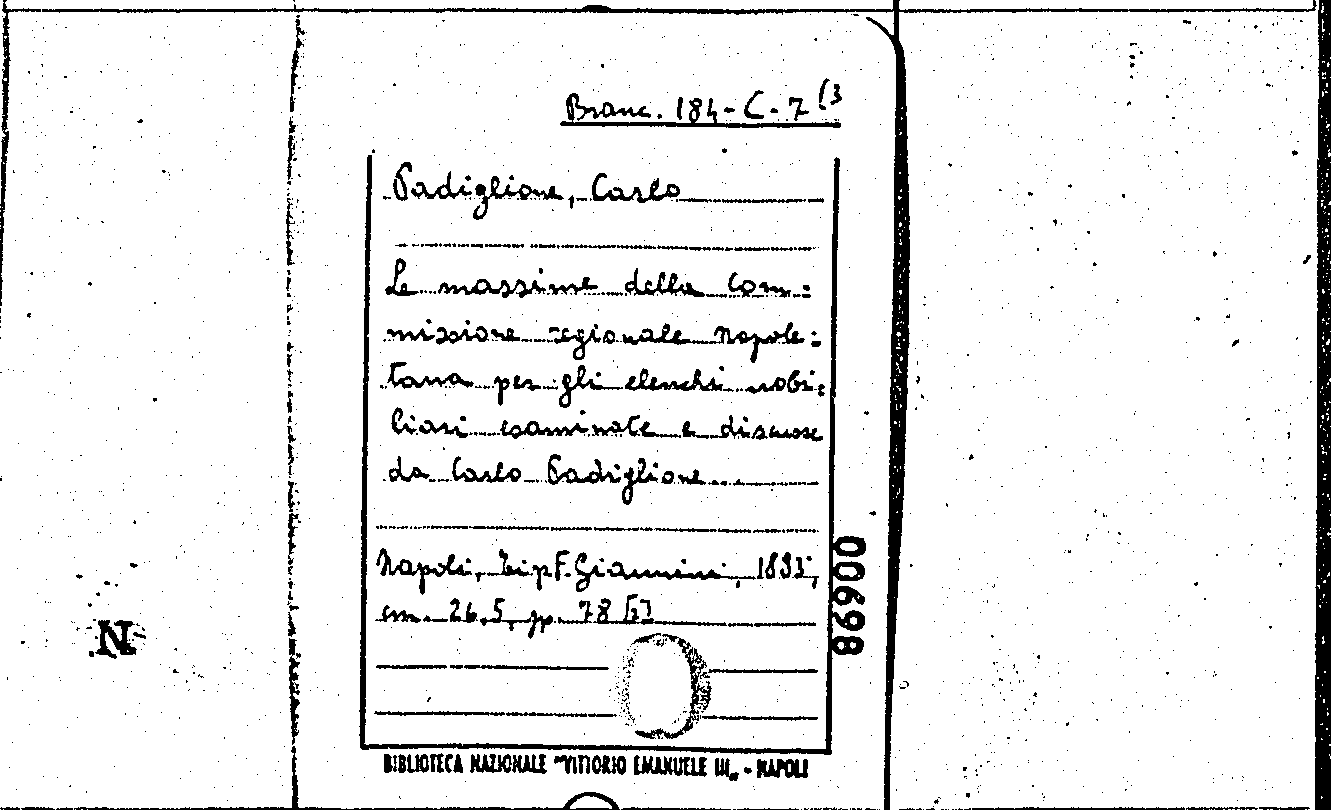 Branc. 184-C-7 (3
Padiglione, Carlo
Le massime della Com=
missione regionale Napole=
tana per gli elenchi nobi=
liari esaminate e discusse
da Carlo Padiglione...
Napoli, Tip. F. Giannini,
cm. 26,5, pp. 78
00698
N
BIBLIOTECA NAZIONALE "VITTORIO EMANUELE III„ - NAPOLI